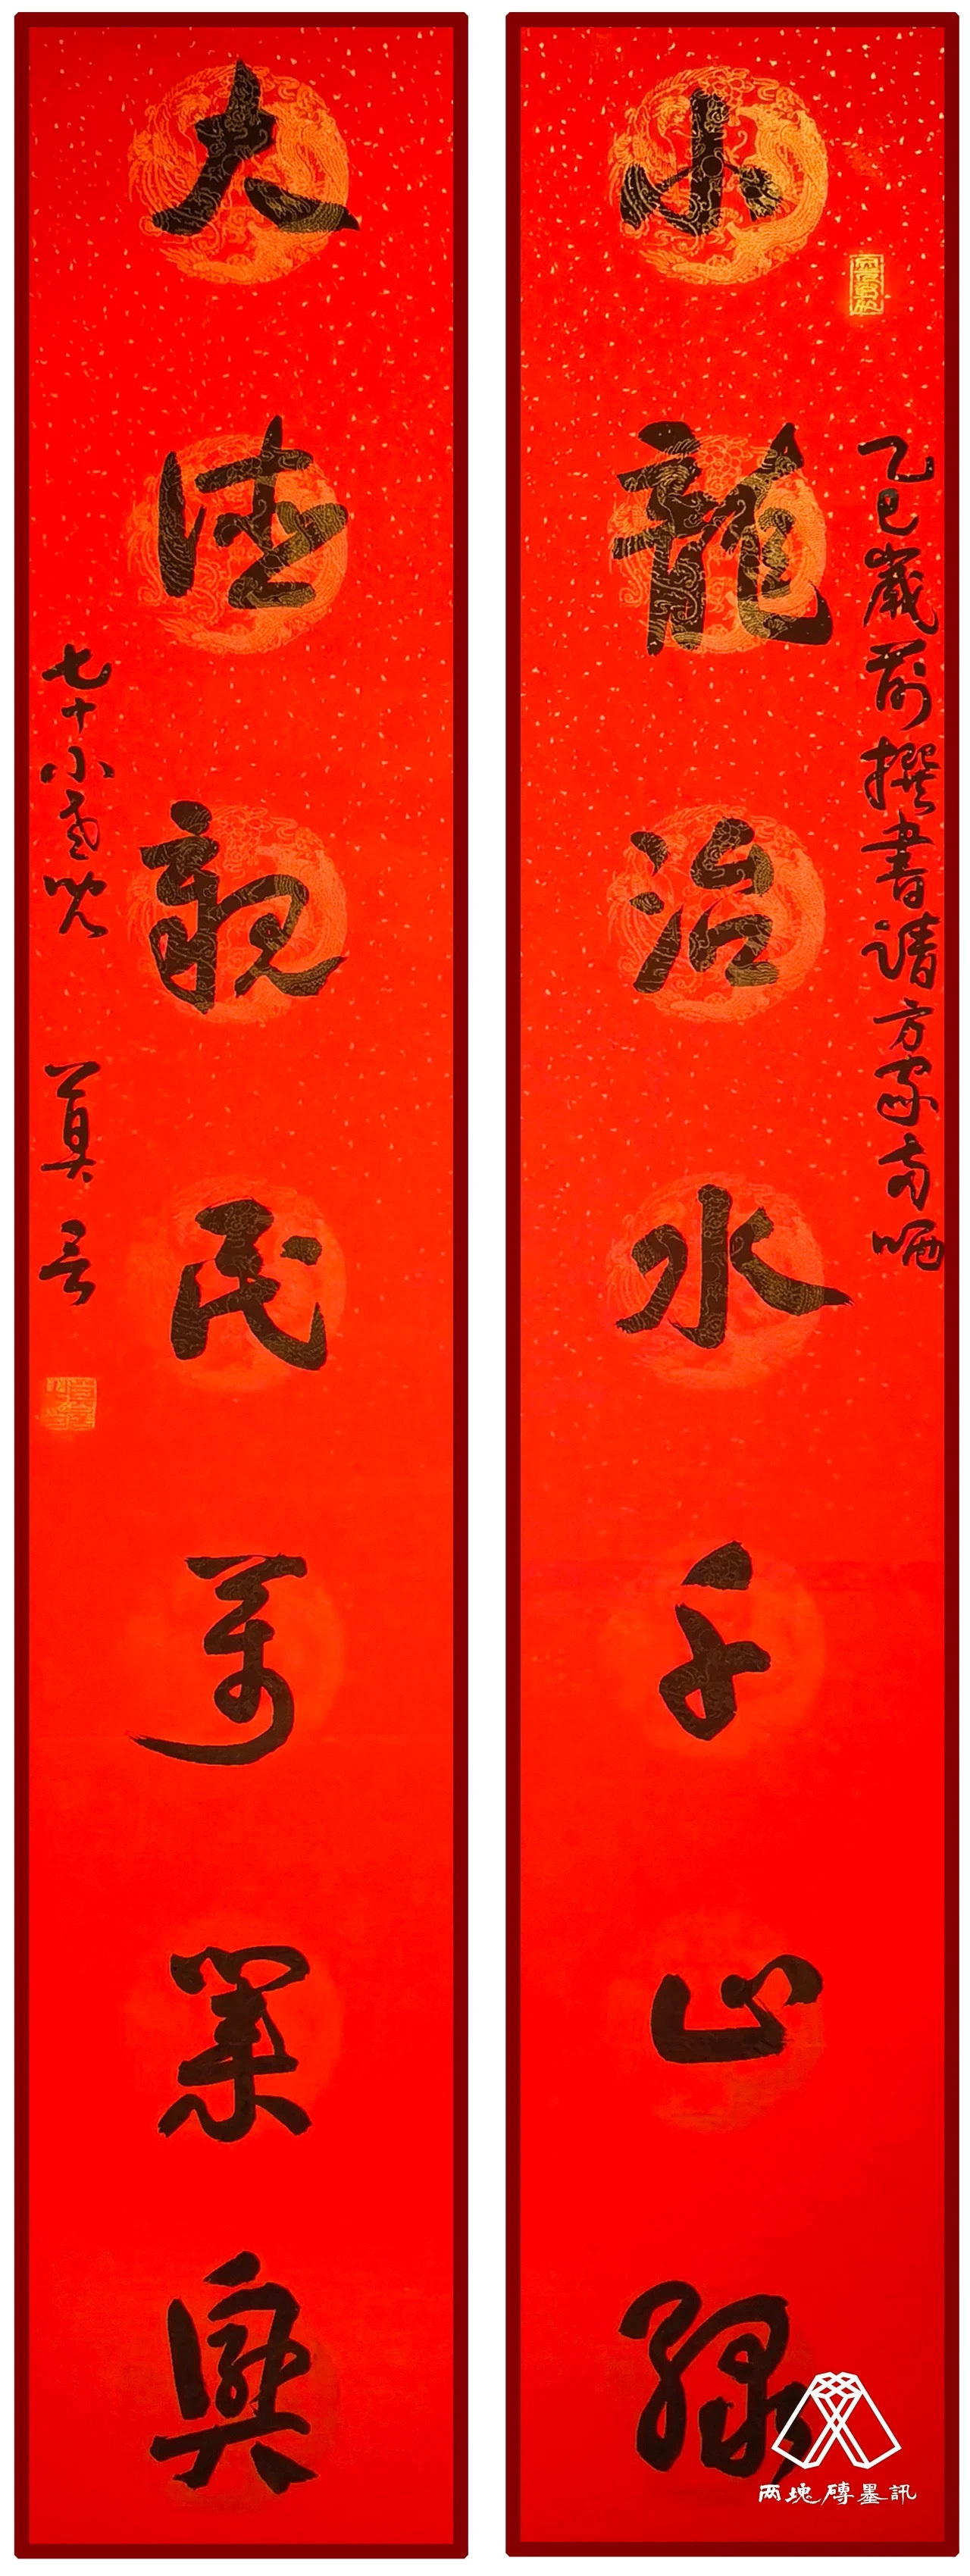 小龍治水千山綠
乙巳歲前撰書請方家雨哂
大德親民萬業興
七十小
莫言
两塊磚墨訊